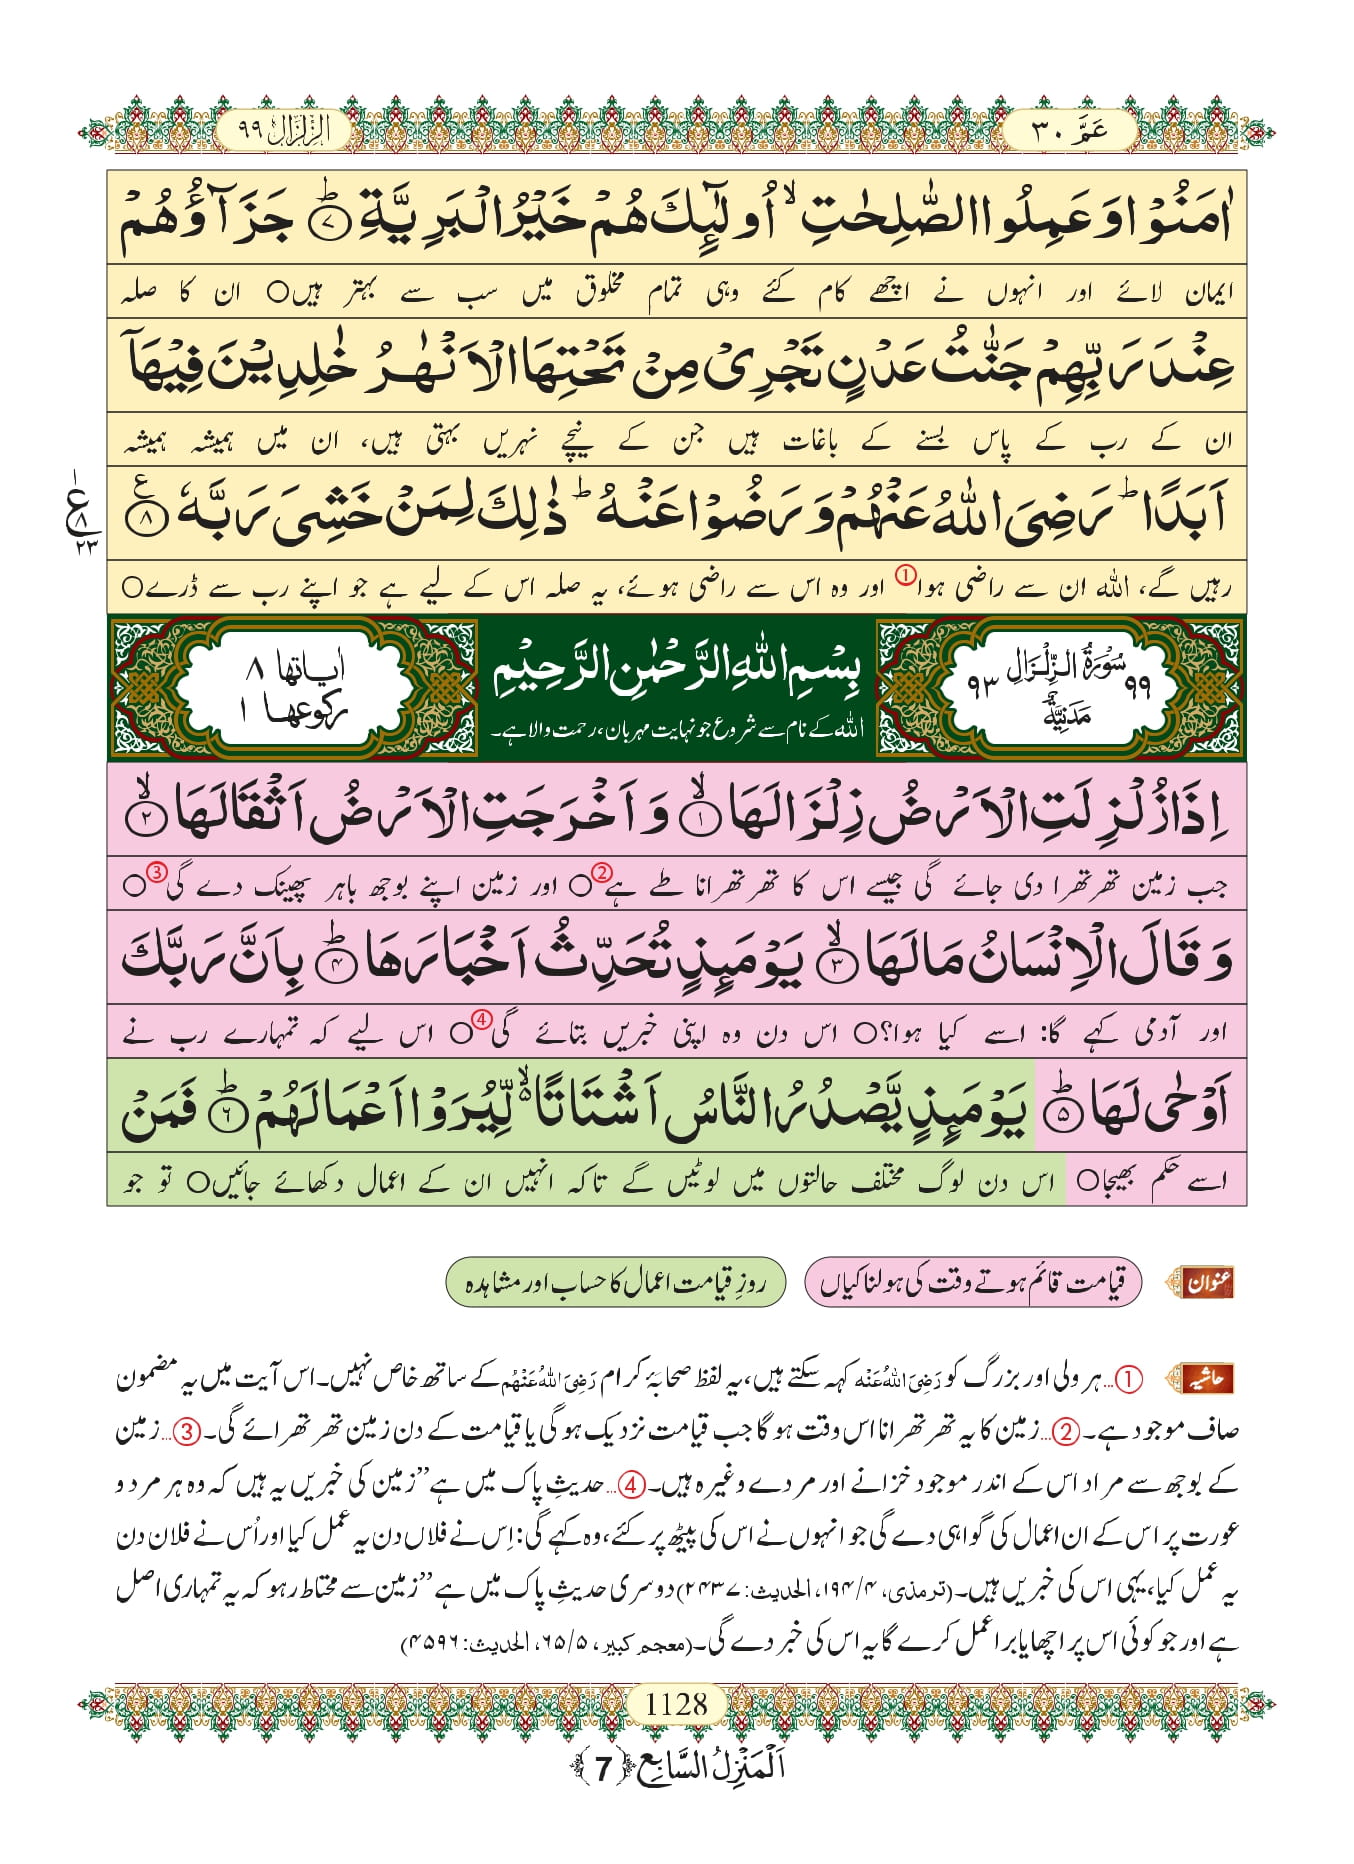 عَمَّ ۳۰
الزِّلْزَال ۹۹
اٰمَنُوْا وَ عَمِلُوا الصّٰلِحٰتِ ۙ اُولٰٓىِٕكَ هُمْ خَيْرُ الْبَرِيَّةِ ؕ۷ جَزَآؤُهُمْ
ایمان لائے اور انہوں نے اچھے کام کئے وہی تمام مخلوق میں سب سے بہتر ہیں○ ان کا صلہ
عِنْدَ رَبِّهِمْ جَنّٰتُ عَدْنٍ تَجْرِیْ مِنْ تَحْتِهَا الْاَنْهٰرُ خٰلِدِیْنَ فِیْهَاۤ
ان کے رب کے پاس بسنے کے باغات ہیں جن کے نیچے نہریں بہتی ہیں، ان میں ہمیشہ ہمیشہ
اَبَدًا ؕ رَضِیَ اللّٰهُ عَنْهُمْ وَ رَضُوْا عَنْهُ ؕ ذٰلِكَ لِمَنْ خَشِیَ رَبَّهٗ ۠۸
ع ۸ ۲۳
رہیں گے، اللہ ان سے راضی ہوا① اور وہ اس سے راضی ہوئے، یہ صلہ اس کے لیے ہے جو اپنے رب سے ڈرے○
۹۹ سُوْرَةُ الزِّلْزَالِ ۹۳
مَدَنِیَّةٌ
بِسْمِ اللّٰهِ الرَّحْمٰنِ الرَّحِیْمِ
اللہ کے نام سے شروع جو نہایت مہربان، رحمت والا ہے۔
اٰیاتها ۸
ركوعها ۱
اِذَا زُلْزِلَتِ الْاَرْضُ زِلْزَالَهَا ۙ۱ وَ اَخْرَجَتِ الْاَرْضُ اَثْقَالَهَا ۙ۲
جب زمین تھرتھرا دی جائے گی جیسے اس کا تھرتھرانا طے ہے②○ اور زمین اپنے بوجھ باہر پھینک دے گی③○
وَ قَالَ الْاِنْسَانُ مَا لَهَا ۚ۳ یَوْمَىِٕذٍ تُحَدِّثُ اَخْبَارَهَا ؕ۴ بِاَنَّ رَبَّكَ
اور آدمی کہے گا: اسے کیا ہوا؟○ اس دن وہ اپنی خبریں بتائے گی④○ اس لیے کہ تمہارے رب نے
اَوْحٰى لَهَا ؕ۵ یَوْمَىِٕذٍ یَّصْدُرُ النَّاسُ اَشْتَاتًا ۙ۬ لِّیُرَوْا اَعْمَالَهُمْ ؕ۶ فَمَنْ
اسے حکم بھیجا○ اس دن لوگ مختلف حالتوں میں لوٹیں گے تاکہ انہیں ان کے اعمال دکھائے جائیں○ تو جو
عنوان
قیامت قائم ہوتے وقت کی ہولناکیاں
روزِ قیامت اعمال کا حساب اور مشاہدہ
حاشیہ
①...ہر ولی اور بزرگ کو رَضِیَ اللّٰهُ عَنْه کہہ سکتے ہیں، یہ لفظ صحابۂ کرام رَضِیَ اللّٰهُ عَنْهُم کے ساتھ خاص نہیں۔ اس آیت میں یہ مضمون
صاف موجود ہے۔ ②...زمین کا یہ تھرتھرانا اس وقت ہوگا جب قیامت نزدیک ہوگی یا قیامت کے دن زمین تھرتھرائے گی۔ ③...زمین
کے بوجھ سے مراد اس کے اندر موجود خزانے اور مردے وغیرہ ہیں۔ ④...حدیثِ پاک میں ہے ”زمین کی خبریں یہ ہیں کہ وہ ہر مرد و
عورت پر اس کے ان اعمال کی گواہی دے گی جو انہوں نے اس کی پیٹھ پر کئے، وہ کہے گی: اِس نے فلاں دن یہ عمل کیا اور اُس نے فلاں دن
یہ عمل کیا، یہی اس کی خبریں ہیں۔ (ترمذی، ۴/۱۹۴، الحدیث: ۲۴۳۷) دوسری حدیثِ پاک میں ہے ”زمین سے محتاط رہو کہ یہ تمہاری اصل
ہے اور جو کوئی اس پر اچھا یا برا عمل کرے گا یہ اس کی خبر دے گی۔ (معجم کبیر، ۵/۶۵، الحدیث: ۴۵۹۶)
1128
اَلْمَنْزِلُ السَّابِع ﴿7﴾